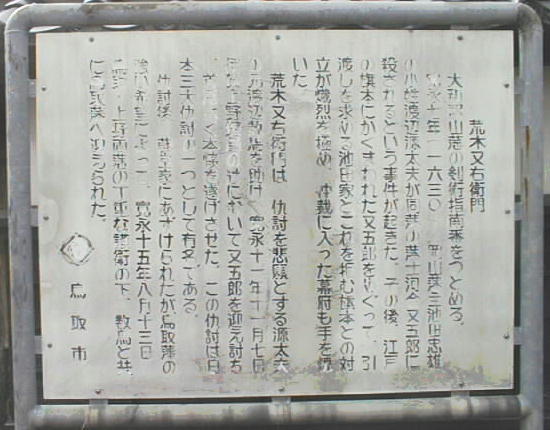 荒木又右衛門
大和郡山藩の剣術指南番をつとめる。
寛永七年（一六三〇）、岡山藩主池田忠雄
の小姓渡辺源太夫が同藩の藩士河合又五郎に
殺されるという事件が起きた。その後、江戸
の旗本にかくまわれた又五郎をめぐって、引
渡しを求める池田家とこれを拒む旗本との対
立が熾烈を極め、仲裁に入った幕府も手を焼
いた。
荒木又右衛門は、仇討を悲願とする源太夫
の兄渡辺数馬を助け、寛永十一年十一月七日
伊賀上野鍵屋の辻において又五郎を迎え討ち
本懐を遂げさせた。この仇討は日
本三大仇討の一つとして有名である。
仇討後、藤堂家にあずけられたが鳥取藩の
よって、寛永十五年八月十三日
上野両藩の丁重な護衛の下、数馬と共
に鳥取藩へ迎えられた。
鳥取市